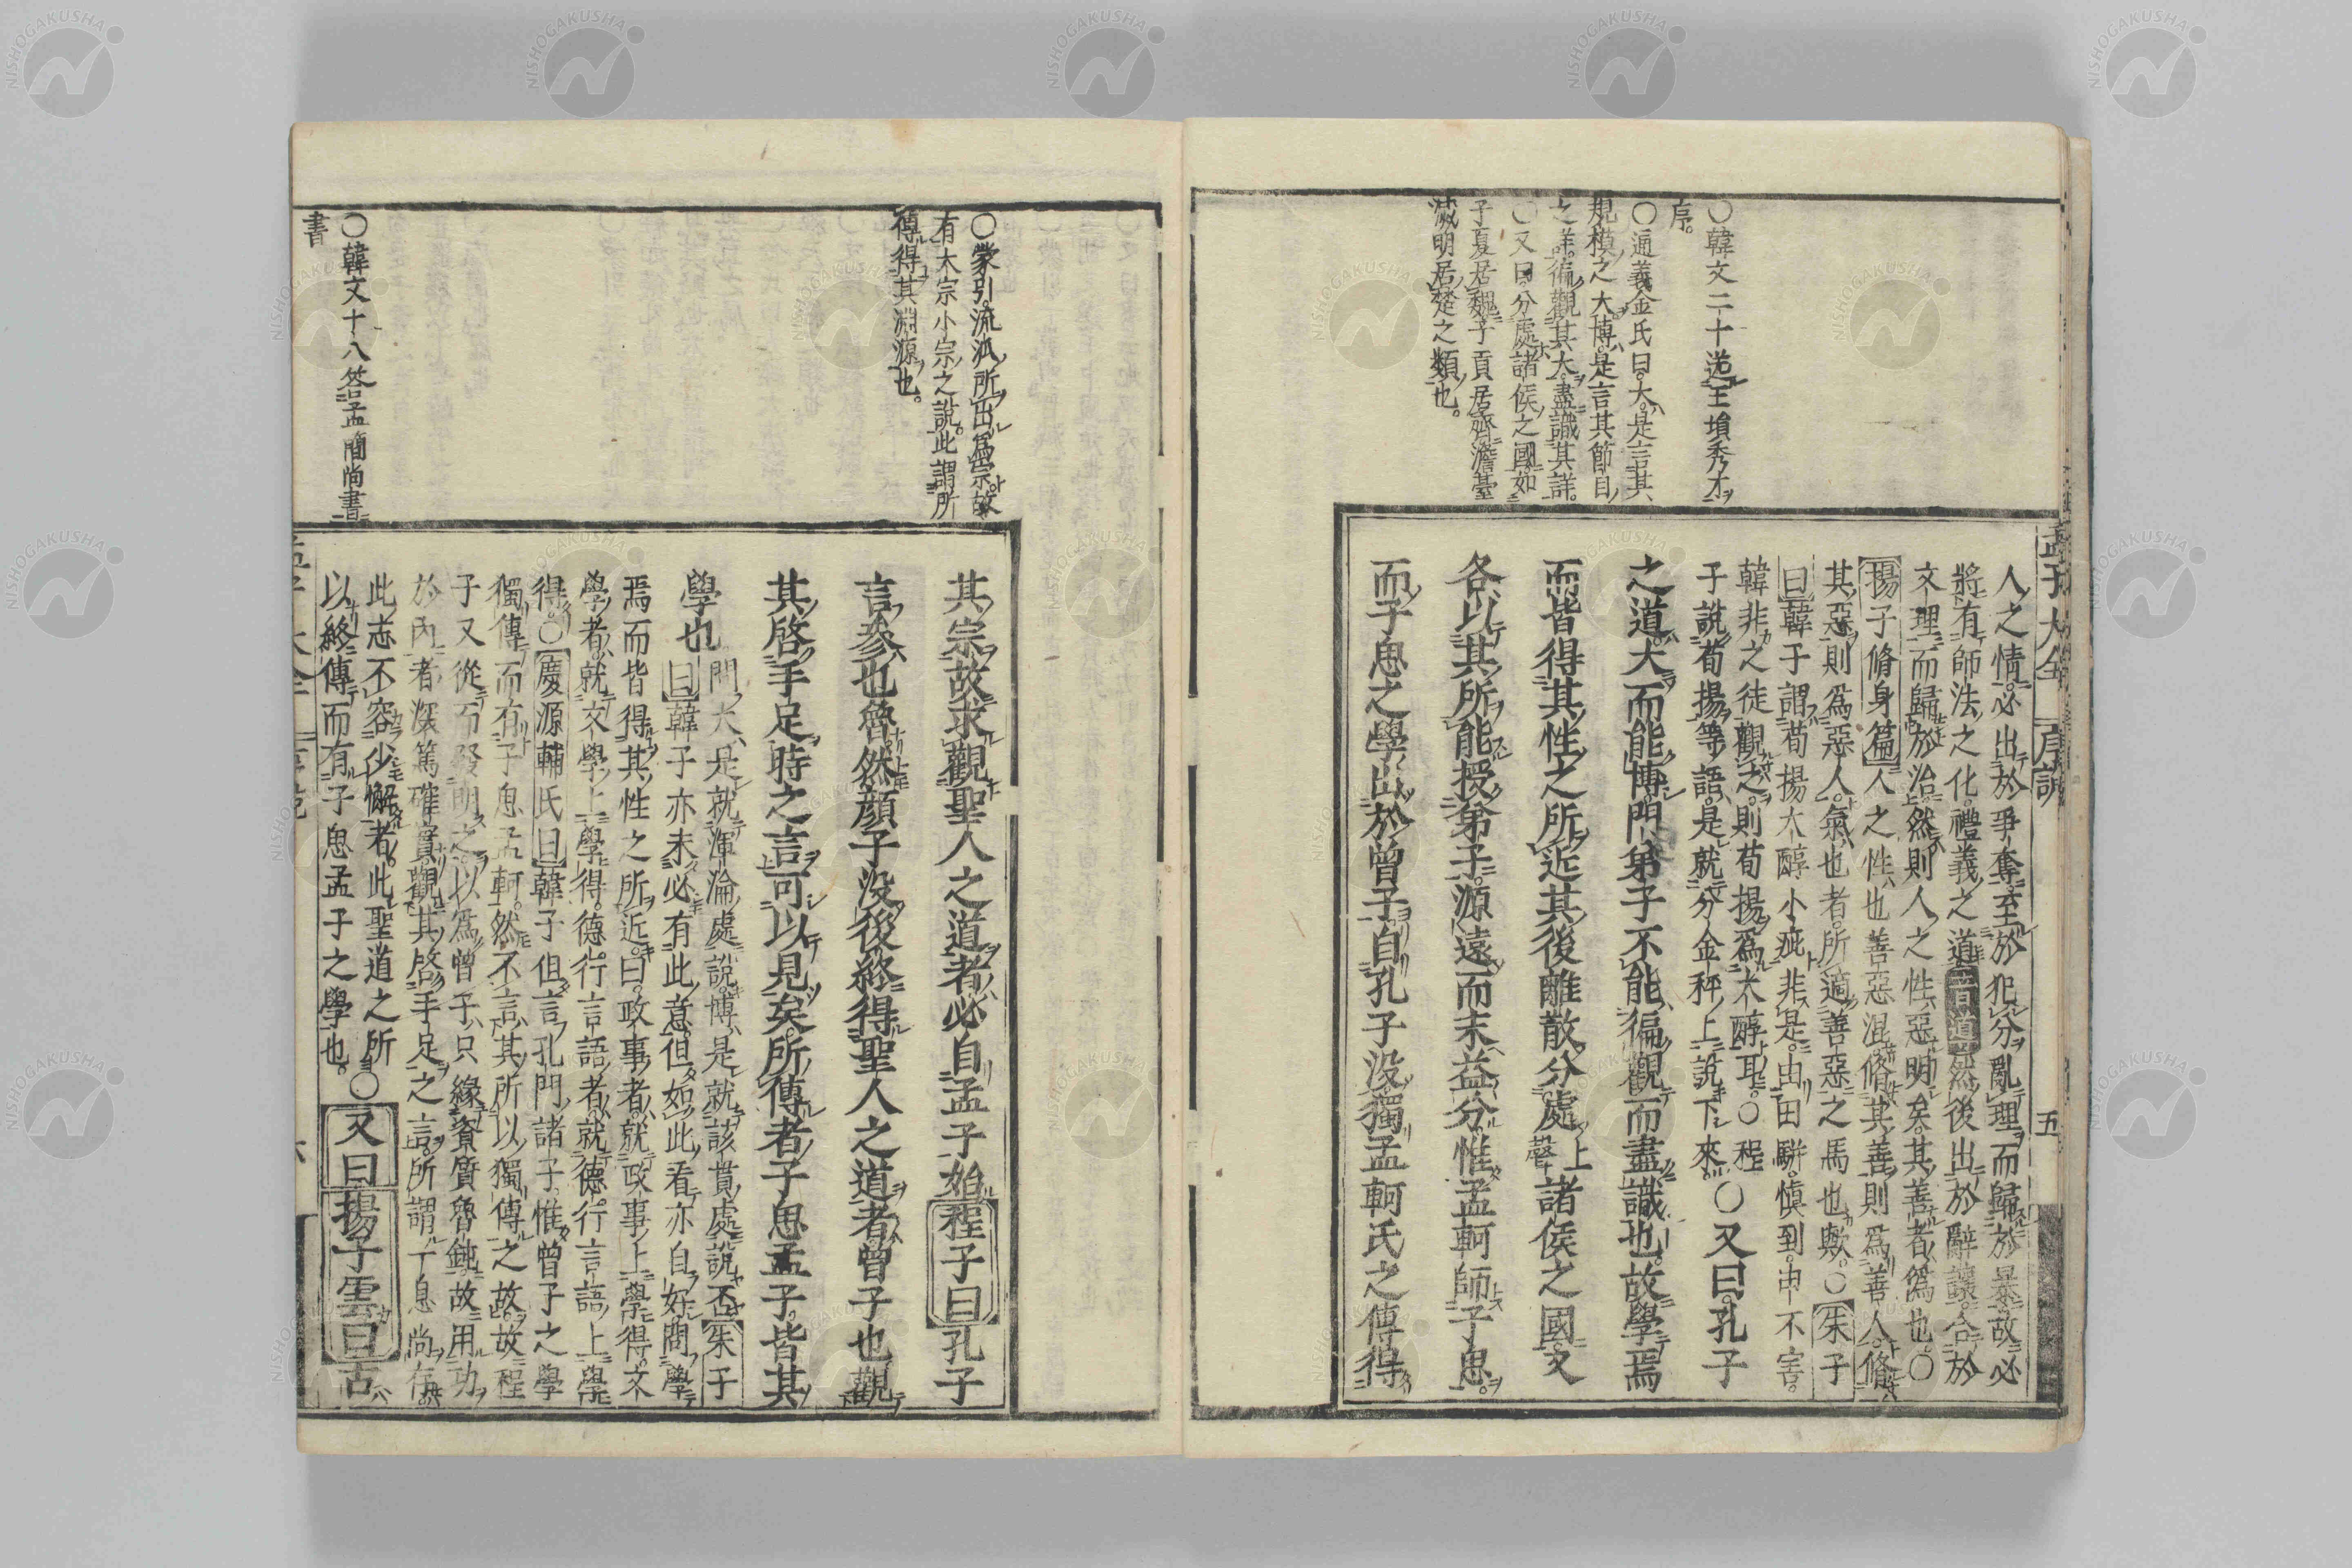 孟子大全 序說 五
○韓文二十送王塤秀才
序。
○通義金氏曰。大是言其
規模之大博。是言其節目
之詳。徧觀其大。盡識其詳。
○又曰。分處諸侯之國。如
子夏居魏。子貢居齊。澹臺
滅明居楚之類也。
人之情。必出於爭奪。至於犯分亂理而歸於暴。故必
將有師法之化。禮義之道音道然後出於辭讓。合於
文理。而歸於治。然則人之性惡明矣。其善者僞也。○
揚子脩身篇人之性也善惡混。脩其善則爲善人。脩
其惡則爲惡人。氣也者。所適善惡之馬也歟。○朱子
曰韓子謂荀揚大醇小疵。非是。由田駢。慎到。申不害。
韓非之徒觀之。則荀揚爲大醇耳。○程
子說荀揚等語。是就分金秤上說下來。○又曰。孔子
之道大而能博。門弟子不能徧觀而盡識也。故學焉
而皆得其性之所近。其後離散。分處上聲諸侯之國。又
各以其所能授弟子。源遠而末益分。惟孟軻師子思。
而子思之學出於曾子。自孔子没。獨孟軻氏之傳得
○蒙引。流派所出爲宗。故
有大宗小宗之說。此謂所
傳得得其淵源也。
○韓文十八答孟簡尚書
書
其宗。故求觀聖人之道者。必自孟子始程子曰孔子
言參也魯。然顔子没後。終得聖人之道者。曾子也。觀
其啓手足時之言。可以見矣。所傳者子思孟子。皆其
學也問大是就渾淪處說。博是就該貫處說否朱子
曰韓子亦未必有此意。但如此看亦自好。問學
焉而皆得其性之所近。曰。政事者。就政事上學得。文
學者。就文學上學得。德行言語者。就德行言語上學
得。○慶源輔氏曰韓子但言孔門諸子。惟曾子之學
獨傳而有子思孟軻。然不言其所以獨傳之故。故程
子又從而發明之。以爲曾子只緣資質魯鈍。故用功
於內者深篤確實。觀其啓手足之言。所謂一息尚存
此志不容少懈者。此聖道之所
以終傳而有子思孟子之學也。○又曰揚子雲曰古